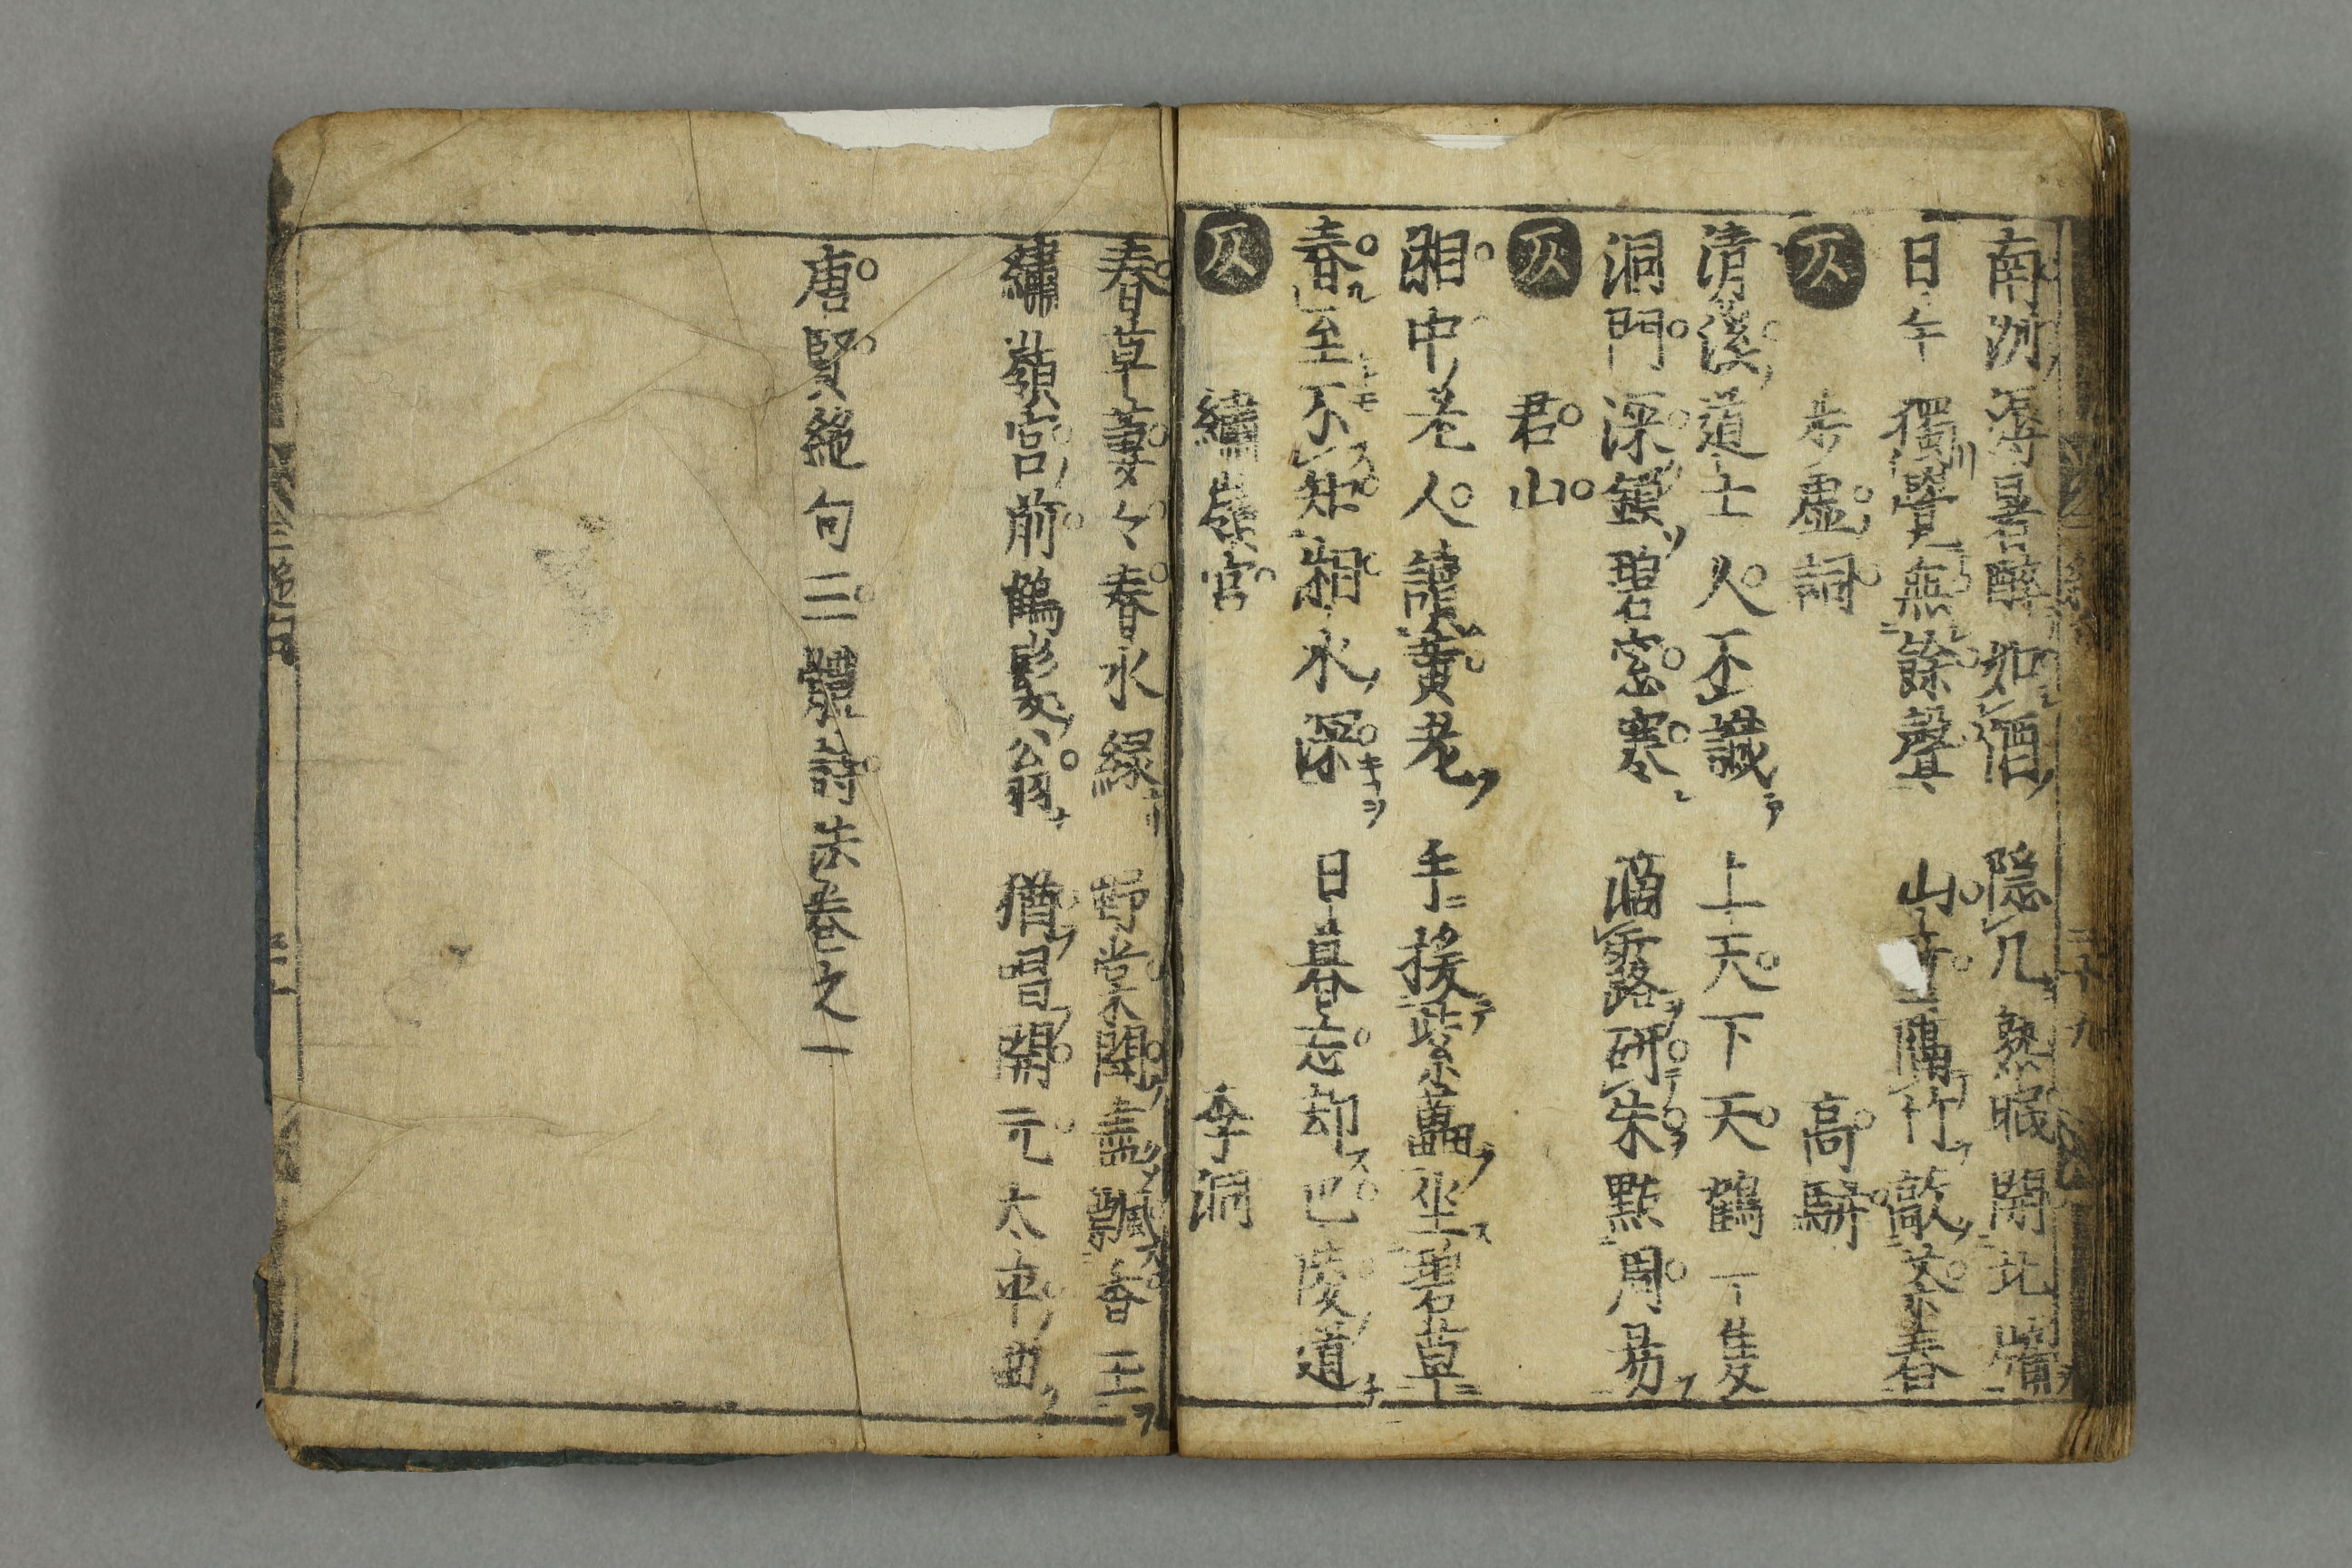 南洲溽暑醉如酒　隠几熟眠開北牖
日午獨覺無餘聲　山童隔竹敲茶舂
仄　步虚詞　高駢
清溪道士人不識　上天下天鶴一隻
洞門深鎖碧窓寒　滴露研朱㸃周易
仄　君山
湘中老人讀黄老　手援紫藟坐碧草
春至不知湘水深　日暮忘却巴陵道
仄　繡嶺宮　李洞
春草萋々春水緑　野棠開盡飄香玉
繡嶺宮前鶴髮翁　猶唱開元太平曲
唐賢絶句三體詩法卷之一